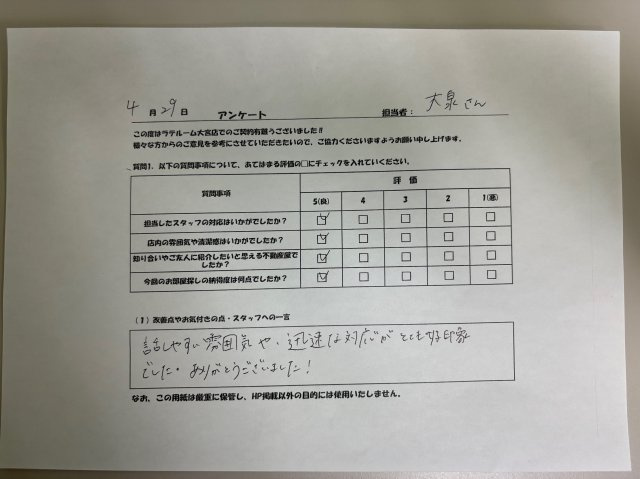 4月29日 アンケート 担当者： 大泉さん
この度はラテルーム大宮店でのご契約有難うございました!!
様々な方からのご意見を参考にさせていただきたいので、ご協力くださいますようお願い申し上げます。
質問1. 以下の質問事項について、あてはまる評価の□にチェックを入れていください。
質問事項 評 価
5(良) 4 3 2 1(悪)
担当したスタッフの対応はいかがでしたか？ ☑ □ □ □ □
店内の雰囲気や清潔感はいかがでしたか？ ☑ □ □ □ □
知り合いやご友人に紹介したいと思える不動産屋で
したか？ ☑ □ □ □ □
今回のお部屋探しの納得度は何点でしたか？ ☑ □ □ □ □
(1) 改善点やお気付きの点・スタッフへの一言
話しやすい雰囲気や、迅速な対応がとても好印象
でした。ありがとうございました！
なお、この用紙は厳重に保管し、HP掲載以外の目的には使用いたしません。